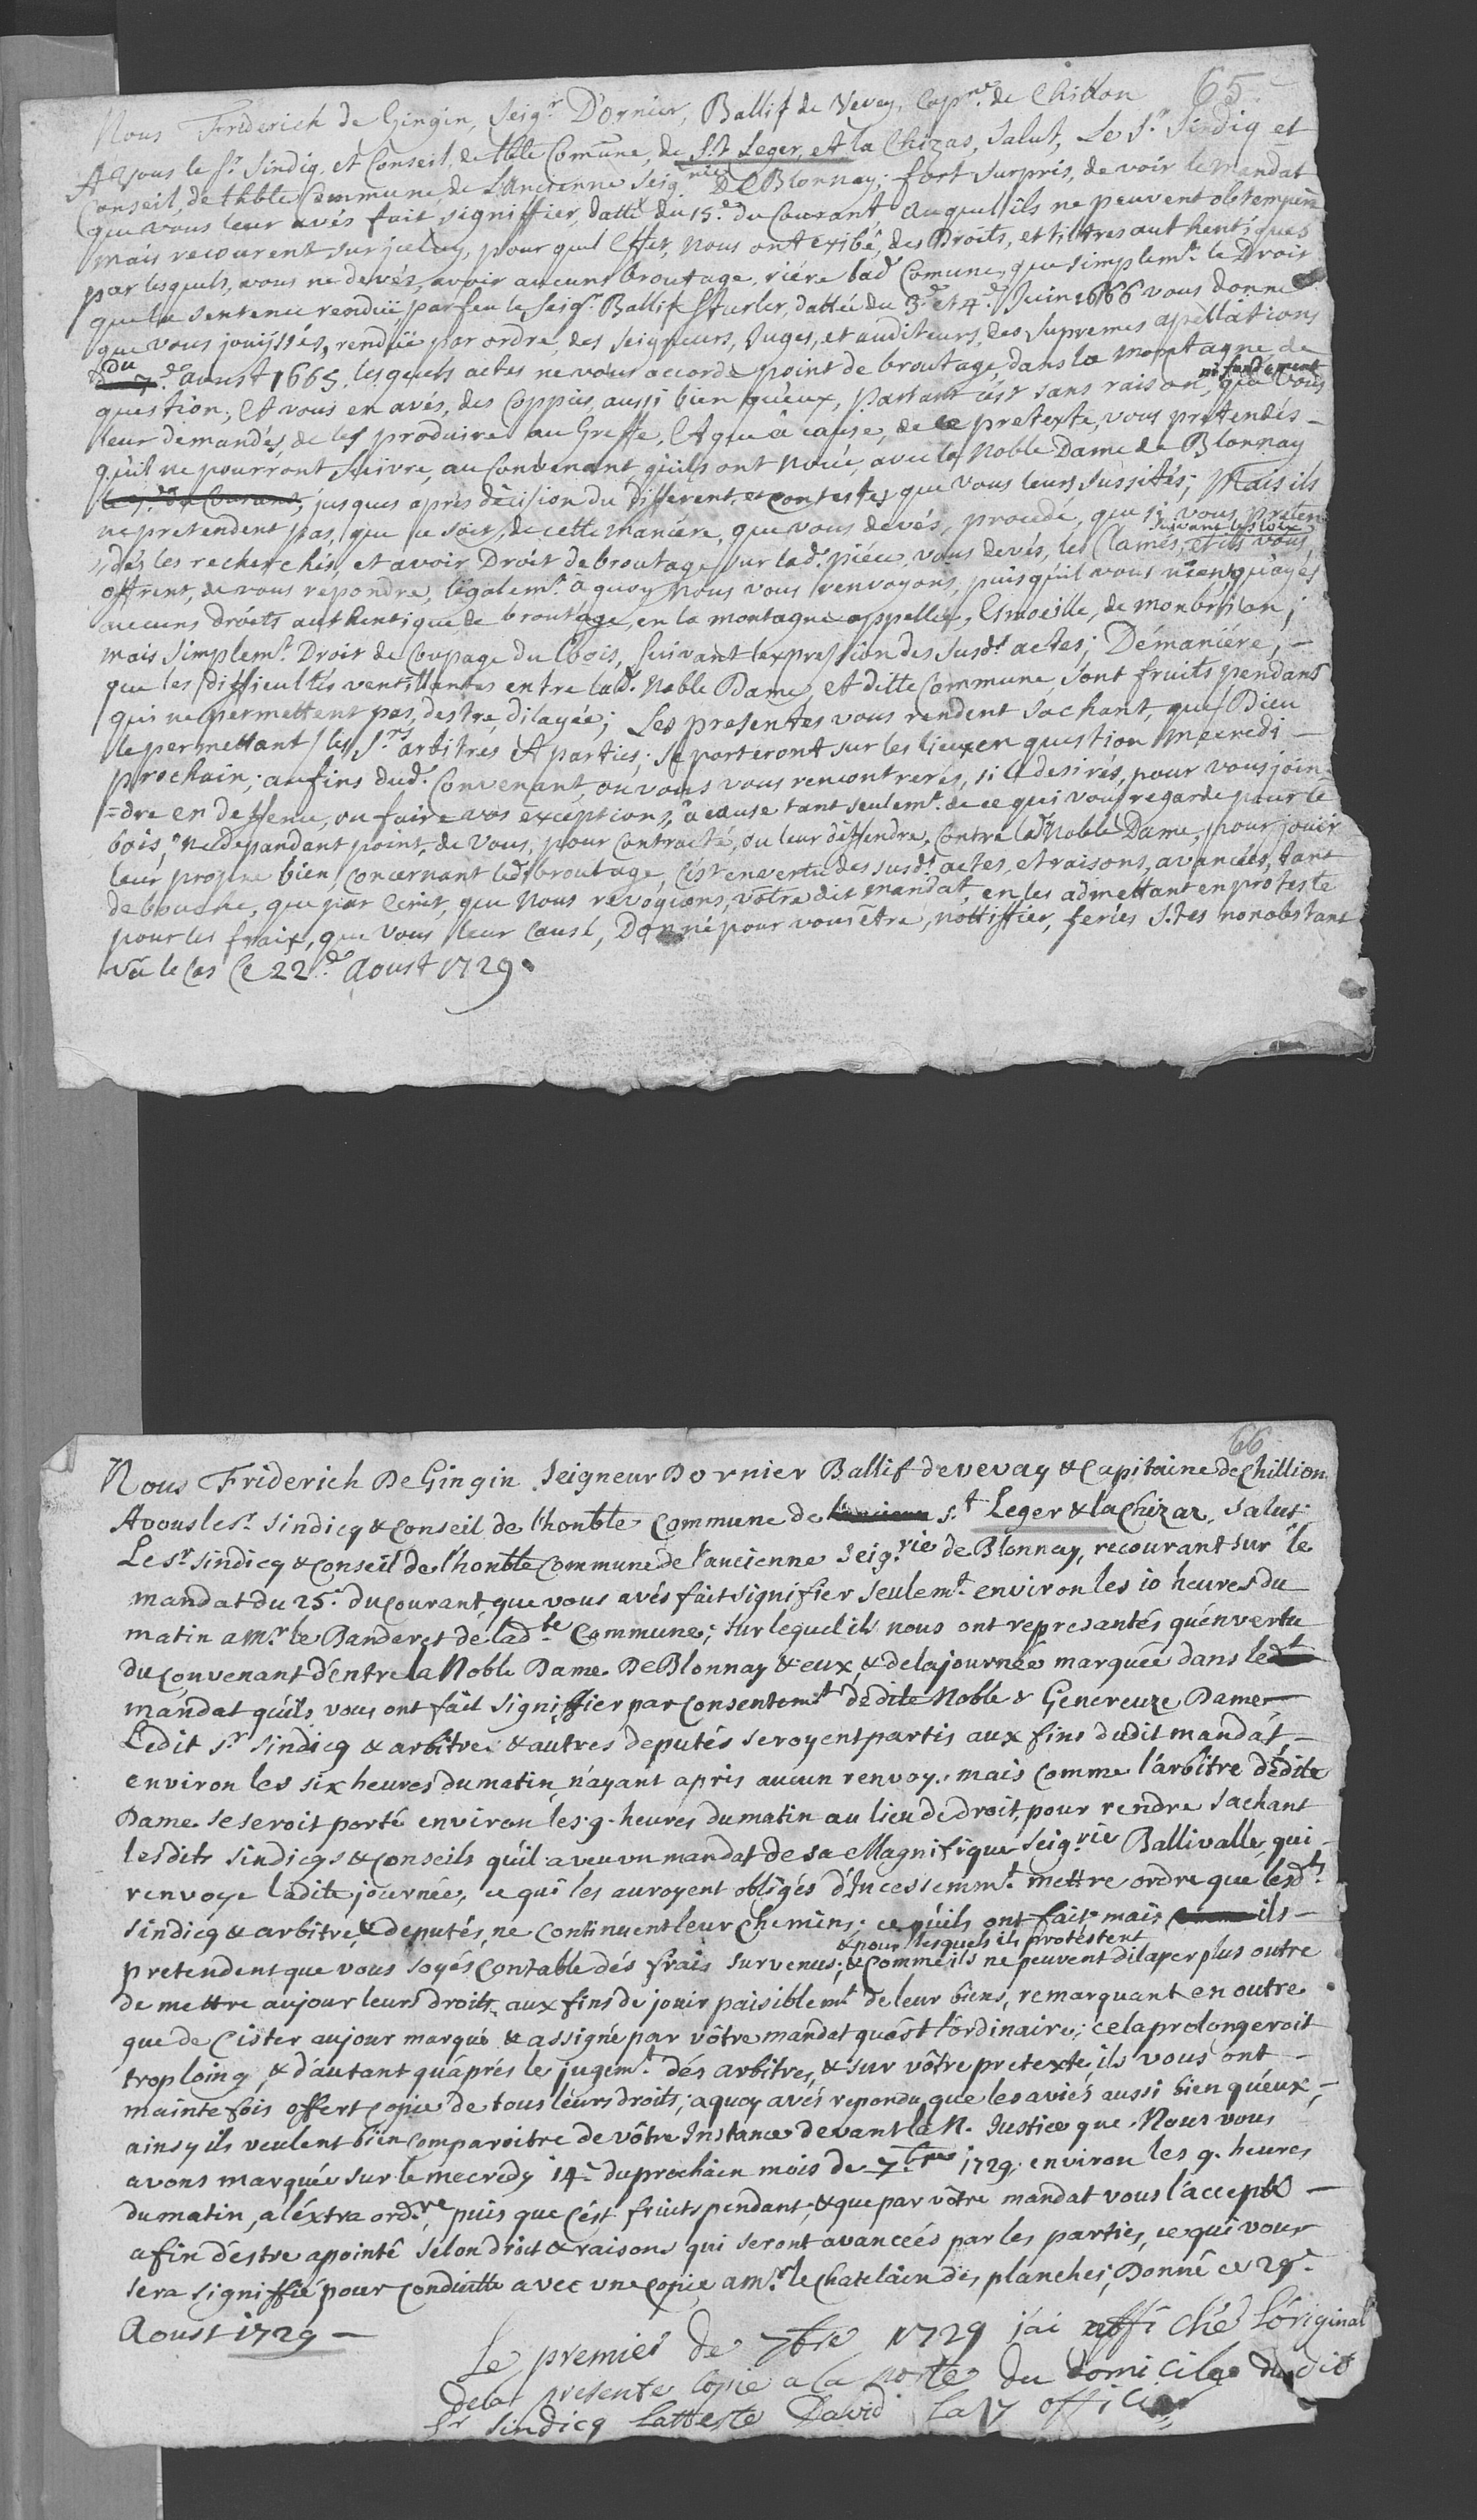 65
Nous Friderich de Gingin, Seigr. D'ornier, Ballif de Vevey, Capne. de Chillon
A Vous le Sr. Sindiq, et Conseil, de lhble Comune, de St. Leger, et la Chizas, Salut, Le Sr. Sindiq et
Conseil, de lhble Commune, de Lancienne Seigrie De Blonnay; fort surpris, de voir le mandat
que vous leur avés fait signiffier, datté du 15e. du Courant auquel ils ne peuvent obtemperé
mais recourent sur jceluy, pour quel effet, nous ont exibé, des Droits, et tiltres authentiques
par lesquels, vous ne devés, avoir aucuns broutage, riére lad. Comune, que simplemt. le Droit
que la sentence renduë par feu le Seigr. Ballif Sturler, dattée du 3e. et 4e. Juin 1666 vous donne
que vous jouijssés, renduë par ordre, des Seigneurs, Juges, et auditeurs, des Supremes apellations
du
7e. aoust 1665. lesquels actes ne vous accorde point de broutage, dans la montagne, de
ni fondement
question, Et vous en avés, des Coppies, aussi bien qu'eux, Partant c'est sans raison, que vous
leur demandés, de les produire au Greffe, Et que à cause, de ce pretexte, vous pretendés –
qu'il ne pourront suivre, au Convenant qu'ils ont noüé, avec la Noble Dame de Blonnay
le du Courant, jusques aprés décision du different, et contestes que vous leurs sussités; Mais ils
ne pretendent pas, que ce soit, de cette maniére, que vous devés, procedé, que si vous preten
suivant les loix
dés les recherchés, et avoir Droit de broutage sur lad. piéce, vous devés, les Clamés, et ils vous
offrent, de vous repondre, légalemt. à quoy Nous vous renvoyons, puis qu'il vous nient, qu'ayés
aucuns droits authentique de broutage, en la montagne appellée, Esmoeille, de monbrilan;
mais simplemt. Droit de Coupage du bois, suivant l'expression des susdt. actes; Démaniére, –
que les difficultés ventillantes entre lad. Noble Dame, et ditte Commune, sont fruits pendans
qui ne permettent pas, destre, dilayée; Les presentes vous rendent sachant, que Dieu
le permettant, les Srs. arbitres et parties; se porteront sur les lieux en question mecredi –
prochain; aux fins dud. Convenant, ou vous vous rencontrerés, si le desirés, pour vous join=
=dre en deffence, ou faire vos exceptions, à cause tant seulemt. de ce qui vous regarde pour le
bois, ne dépandant point, de vous, pour contracté, ou leur déffendre, contre lad. Noble Dame, pour jouir
leur propre bien, concernant led. broutage, C'est en vertu des susdt. actes, et raisons, avancées, tant
de bouche, que par Ecrit, que Nous revoquons, votre dit mandat, en les admettant en proteste
pour les fraix, que vous leur causé, Donné pour vous être, nottiffier, feries Stes nonobstant
vü le Cas Ce 22e. Aoust 1729.
66
Nous Friderich De Gingin Seigneur Dornier Ballif de vevay & Capitaine de Chillion
A vous le Sr. Sindicq & Conseil de l'honble Commune de St. Leger & la Chizaz, Salut
Le Sr. Sindicq & Conseil de l'honble Commune de l'ancienne Seigrie de Blonnay, recourant sur le
mandat du 25e. du courant que vous avés fait signifier seulemt. environ les 10 heures du
matin a Mr. le Banderet de ladte Commune; sur lequel ils nous ont represantés qu'en vertu
du convenant d'entre la Noble Dame De Blonnay & eux, & de la journée marquée dans ledt
mandat qu'ils vous ont fait signiffier par Consentemt. dédite Noble & Genereuze Dame –
Ledit Sr. Sindicq & arbitre & autres deputés seroyent partis aux fins dudit mandat, –
environ les six heures du matin, n'ayant apris aucun renvoy. mais comme l'arbitre dédite
Dame se seroit porté environ les 9. heures du matin au lieu de droit, pour rendre sachant
lesdits Sindicqs & Conseils qu'il a veu un mandat de sa Magnifique Seigrie Ballivalle, qui
renvoye ladite journée, ce qui les auroyent obligés d'Incessemmt. mettre ordre que lesdts
Sindicq & arbitre, & deputés, ne continuent leur Chemins; ce qu'ils ont fait mais ils –
& pour lesquels ils protestent
pretendent que vous soyés contable dés frais survenus; & comme ils ne peuvent dilayer plus outre
de mettre au jour leurs droits, aux fins de jouir paisiblemt. de leur biens, remarquant en outre
que de Cister au jour marqué & assigné par vôtre mandat qu'est l'ordinaire; cela prolongeroit
trop loing, & d'autant qu'aprés le jugemt. dés arbitres, & sur vôtre pretexte, ils vous ont –
mainte fois offert copie de tous leurs droits; a quoy avés repondu, que les aviés aussi bien qu'eux, –
ainsy ils veulent bien comparoitre de vôtre Instance devant la N. Justice que Nous vous
avons marquée sur le mecredy 14e. du prochain mois de 7bre 1729, environ les 9. heures
du matin, a l'éxtra ordre. puis que c'ést fruits pendant, & que par vôtre mandat vous l'accepté –
afin d'estre apointé selon droit & raisons qui seront avanceés par les parties, ce qui vous
sera signiffié pour conduitte avec une copie a Mr. le Chatelain des planches; Donné ce 29e.
Aoust 1729 –
Le premier de 7bre 1729 j'ai affi Ché l'original
de la presente Copie a la porte du domicile du dit
Sr Sindicq Latteste David officier